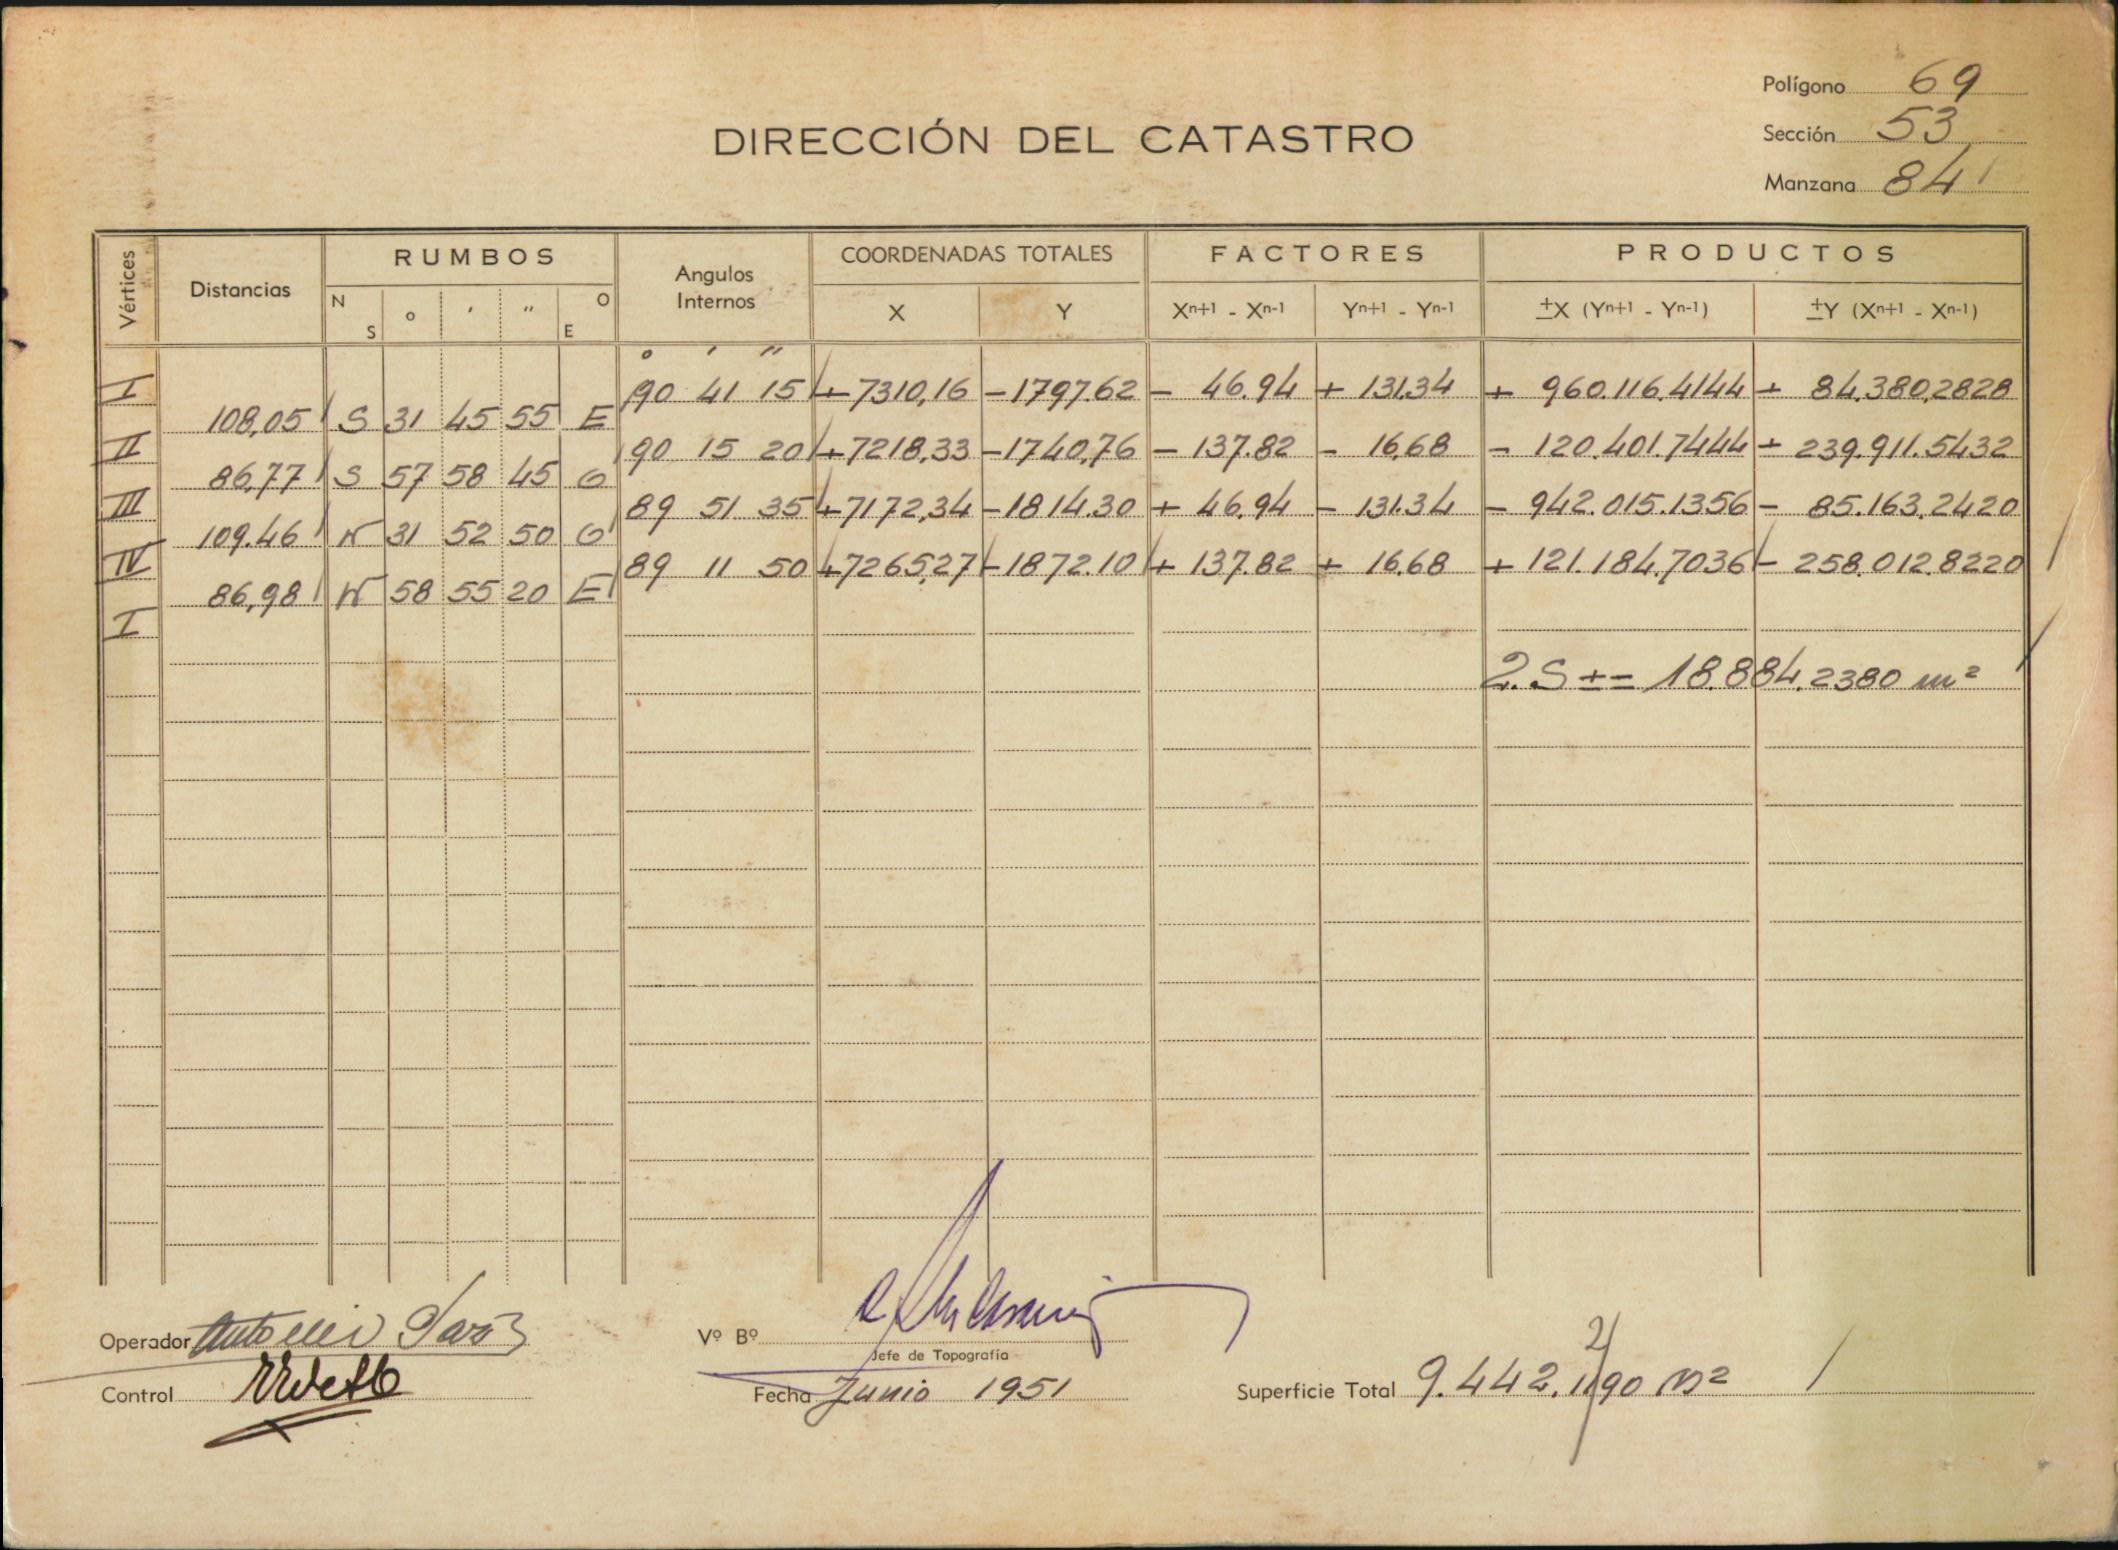 Polígono 69
DIRECCIÓN DEL CATASTRO
Sección 53
Manzana 84
Vértices Distancias RUMBOS Angulos Internos COORDENADAS TOTALES FACTORES PRODUCTOS
N S o ' " O E X Y Xn+1 - Xn-1 Yn+1 - Yn-1 ±X (Yn+1 - Yn-1) ±Y (Xn+1 - Xn-1)
o ' "
I 90 41 15 +7310,16 -1797.62 - 46.94 + 131.34 + 960.116.4144 + 84.380,2828
108,05 S 31 45 55 E
II 90 15 20 +7218,33 -1740,76 - 137.82 - 16,68 - 120.401.7444 + 239.911.5432
86,77 S 57 58 45 O
III 89 51 35 +7172,34 -1814.30 + 46,94 - 131.34 - 942.015.1356 - 85.163.2420
109.46 N 31 52 50 O
IV 89 11 50 +7265,27 -1872.10 + 137.82 + 16,68 + 121.184,7036 - 258.012.8220
86,98 N 58 55 20 E
I
2.S ± = 18.884.2380 m²
Operador Antonio
Vº Bº
Jefe de Topografía
Control
Fecha Junio 1951
Superficie Total 9.442.1190 m²
2